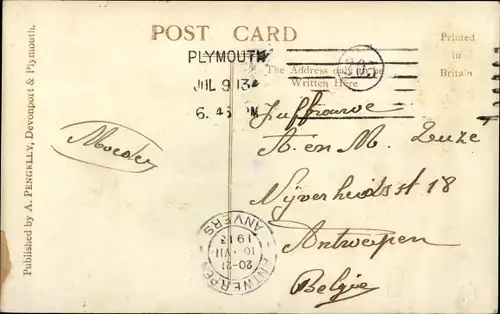 POST CARD
PLYMOUTH
JUL 9 13
6.45 PM
The Address only to be
Written Here
Printed
in
Britain
Published by A. PENGELLY, Devonport & Plymouth.
Moeder
Juffrouwe
A. en M. Luze
Nijverheidsst 18
Antwerpen
Belgie
ANTWERPEN
20-21
10 · VII
1913
ANVERS